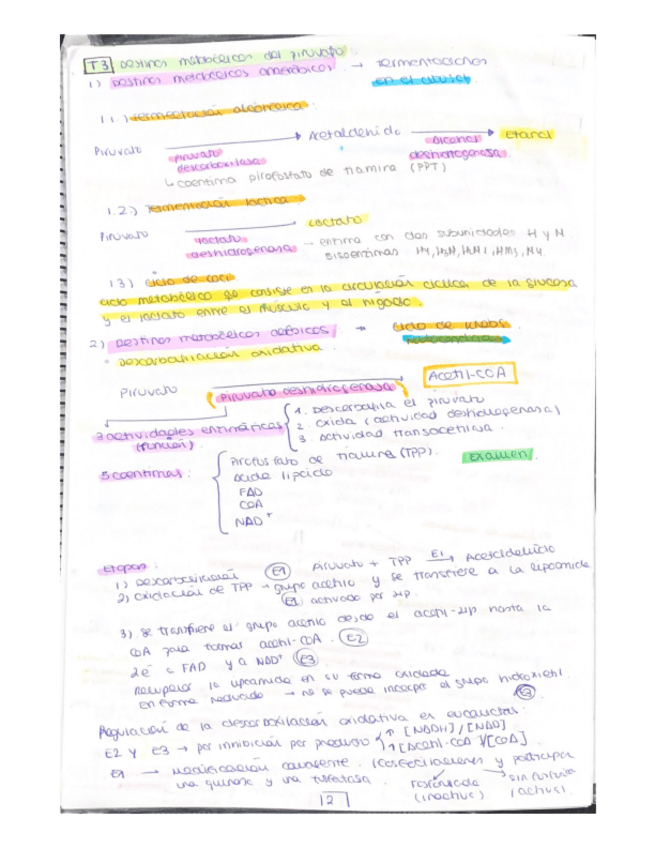 T3 Destinos metabólicos del piruvato:
1) Destinos metabólicos anaeróbicos → Fermentaciones
en el citosol
1.1) Fermentación alcohólica:
Piruvato → Acetaldehído → etanol
piruvato alcohol
descarboxilasa deshidrogenasa
↳ coentima pirofosfato de tiamina (PPT)
1.2) Fermentación láctica
Piruvato → Lactato
lactato
deshidrogenasa → entima con dos subunidades H y M
5 isoentimas
1.3) Ciclo de cori
ciclo metabólico que consiste en la circulación cíclica de la glucosa
y el lactato entre el músculo y el hígado.
2) Destinos metabólicos aeróbicos: → Ciclo de Krebs
• Descarboxilación oxidativa
Piruvato → Acetil-COA
(Piruvato deshidrogenasa)
3 actividades entimáticas
(función)
1. Descarboxila el piruvato
2. oxida (actividad deshidrogenasa)
3. actividad transacetilasa.
5 coentimas:
Pirofosfato de tiamina (TPP). examen
ácido lipóico
FAD
COA
NAD+
Etapas:
1) Descarboxilación E1 Piruvato + TPP E1→
2) oxidación de TPP → grupo acetilo y se transfiere a la lipoamida
E1 activado por
3) se transfiere el grupo acetilo desde el acetil-lip hasta la
COA para formar acetil-COA. E2
2e- a FAD y a NAD+ E3
Recuperar la lipoamida en su forma oxidada
en forma reducida → no se puede incorporar el grupo hidroxietil
E3
Regulación de la descarboxilación oxidativa en eucariotas:
E2 y E3 → por inhibición por producto ↑ [NADH]/[NAD]
↑ [Acetil-COA]/[COA].
E1 → modificación covalente. (fosforilaciones y participa
una quinasa y una fosfatasa. fosforilada sin
(inactiva) (activa).
12